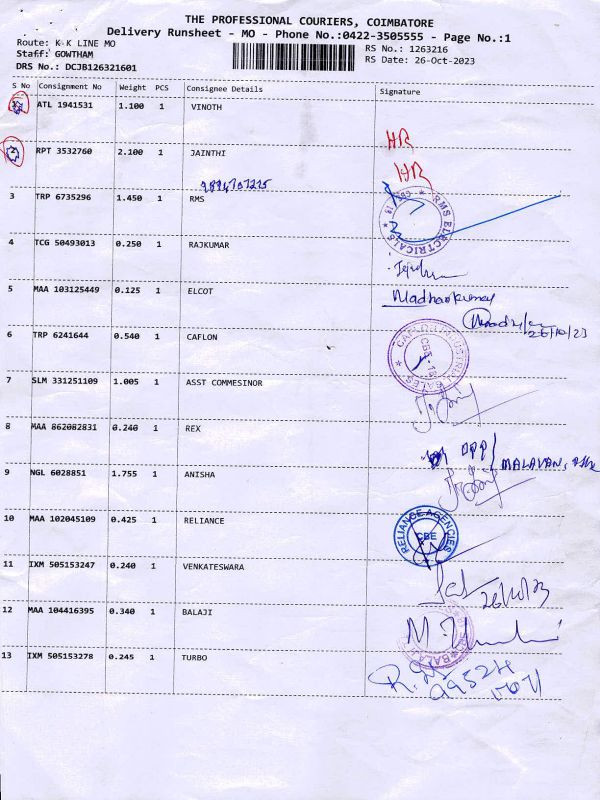 THE PROFESSIONAL COURIERS, COIMBATORE
Delivery Runsheet - MO - Phone No.:0422-3505555 - Page No.:1
Route: K K LINE MO
RS No.: 1263216
Staff: GOWTHAM
RS Date: 26-Oct-2023
DRS No.: DCJB126321601
S No Consignment No Weight PCS Consignee Details Signature
ATL 1941531 1.100 1 VINOTH
HR
RPT 3532760 2.100 1 JAINTHI
HR
3 TRP 6735296 1.450 1 RMS
RMS ELECTRICALS
4 TCG 50493013 0.250 1 RAJKUMAR
5 MAA 103125449 0.125 1 ELCOT
26/10/23
6 TRP 6241644 0.540 1 CAFLON
7 SLM 331251109 1.005 1 ASST COMMESINOR
8 MAA 862082831 0.240 1 REX
MALAVAN
9 NGL 6028851 1.755 1 ANISHA
10 MAA 102045109 0.425 1 RELIANCE
RELIANCE AGENCIES
CBE
11 IXM 505153247 0.240 1 VENKATESWARA
26/10/23
12 MAA 104416395 0.340 1 BALAJI
13 IXM 505153278 0.245 1 TURBO